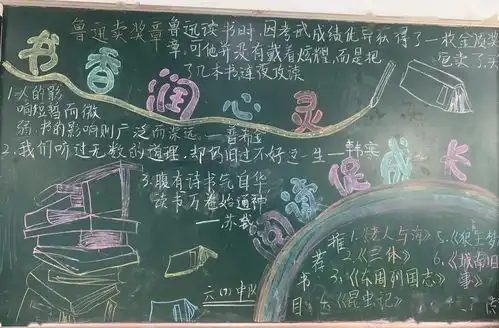 鲁迅卖奖章 鲁迅读书时,因考试成绩优异获得了一枚金质奖
章,可他并没有戴着炫耀,而是把它卖了买
了几本书连夜攻读
书香润心灵
1.人的影
响短暂而微
弱,书的影响则广泛而深远。——普希金
2.我们听过无数的道理,却仍旧过不好这一生——韩寒
3.腹有诗书气自华
读书万卷始通神
——苏轼
阅读促成长
六(1)中队
推荐书目
1.《老人与海》
2.《三体》
3.《东周列国志》
《昆虫记》
5.《狼王梦
6.《城南旧
事》